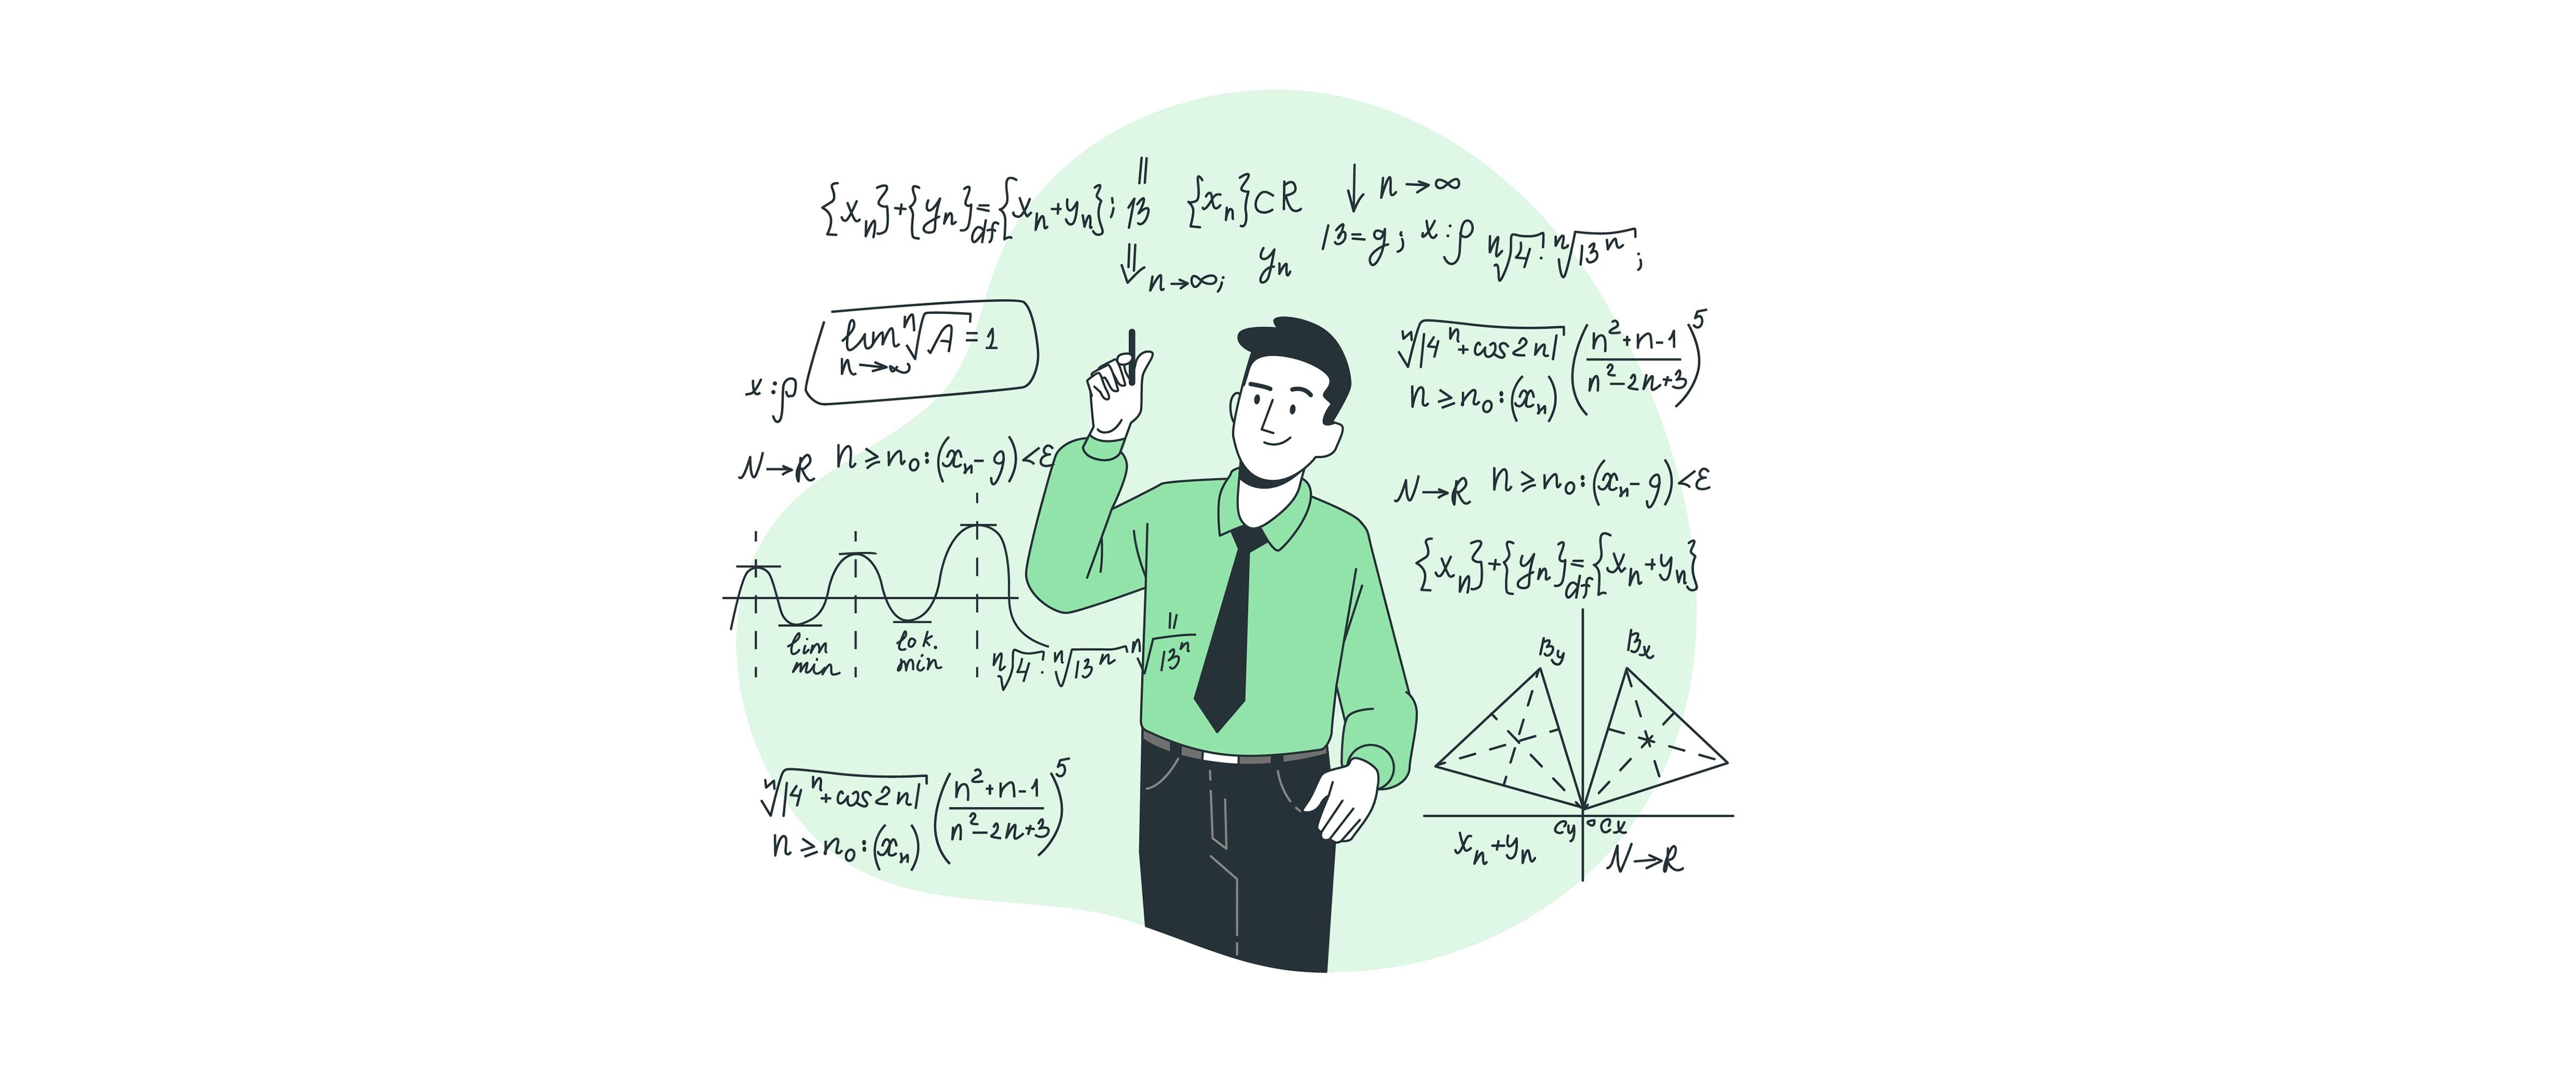 {xₙ}+{yₙ}=df{xₙ+yₙ}; 13
=
⇓ n→∞;
{xₙ}⊂R
yₙ
↓ n→∞
13=g; x:ρ ⁿ√4: ⁿ√13ⁿ;
lim ⁿ√A=1
n→∞
x:ρ
N→R n≥n₀:(xₙ-g)<ε
lim min
lok. min
ⁿ√4: ⁿ√13ⁿ ⁿ√13ⁿ
=
ⁿ√|4ⁿ+cos2n| ((n²+n-1)/(n²-2n+3))⁵
n≥n₀:(xₙ)
ⁿ√|4ⁿ+cos2n| ((n²+n-1)/(n²-2n+3))⁵
n≥n₀:(xₙ)
N→R n≥n₀:(xₙ-g)<ε
{xₙ}+{yₙ}=df{xₙ+yₙ}
By Bx
Cy °Cx
xₙ+yₙ N→R